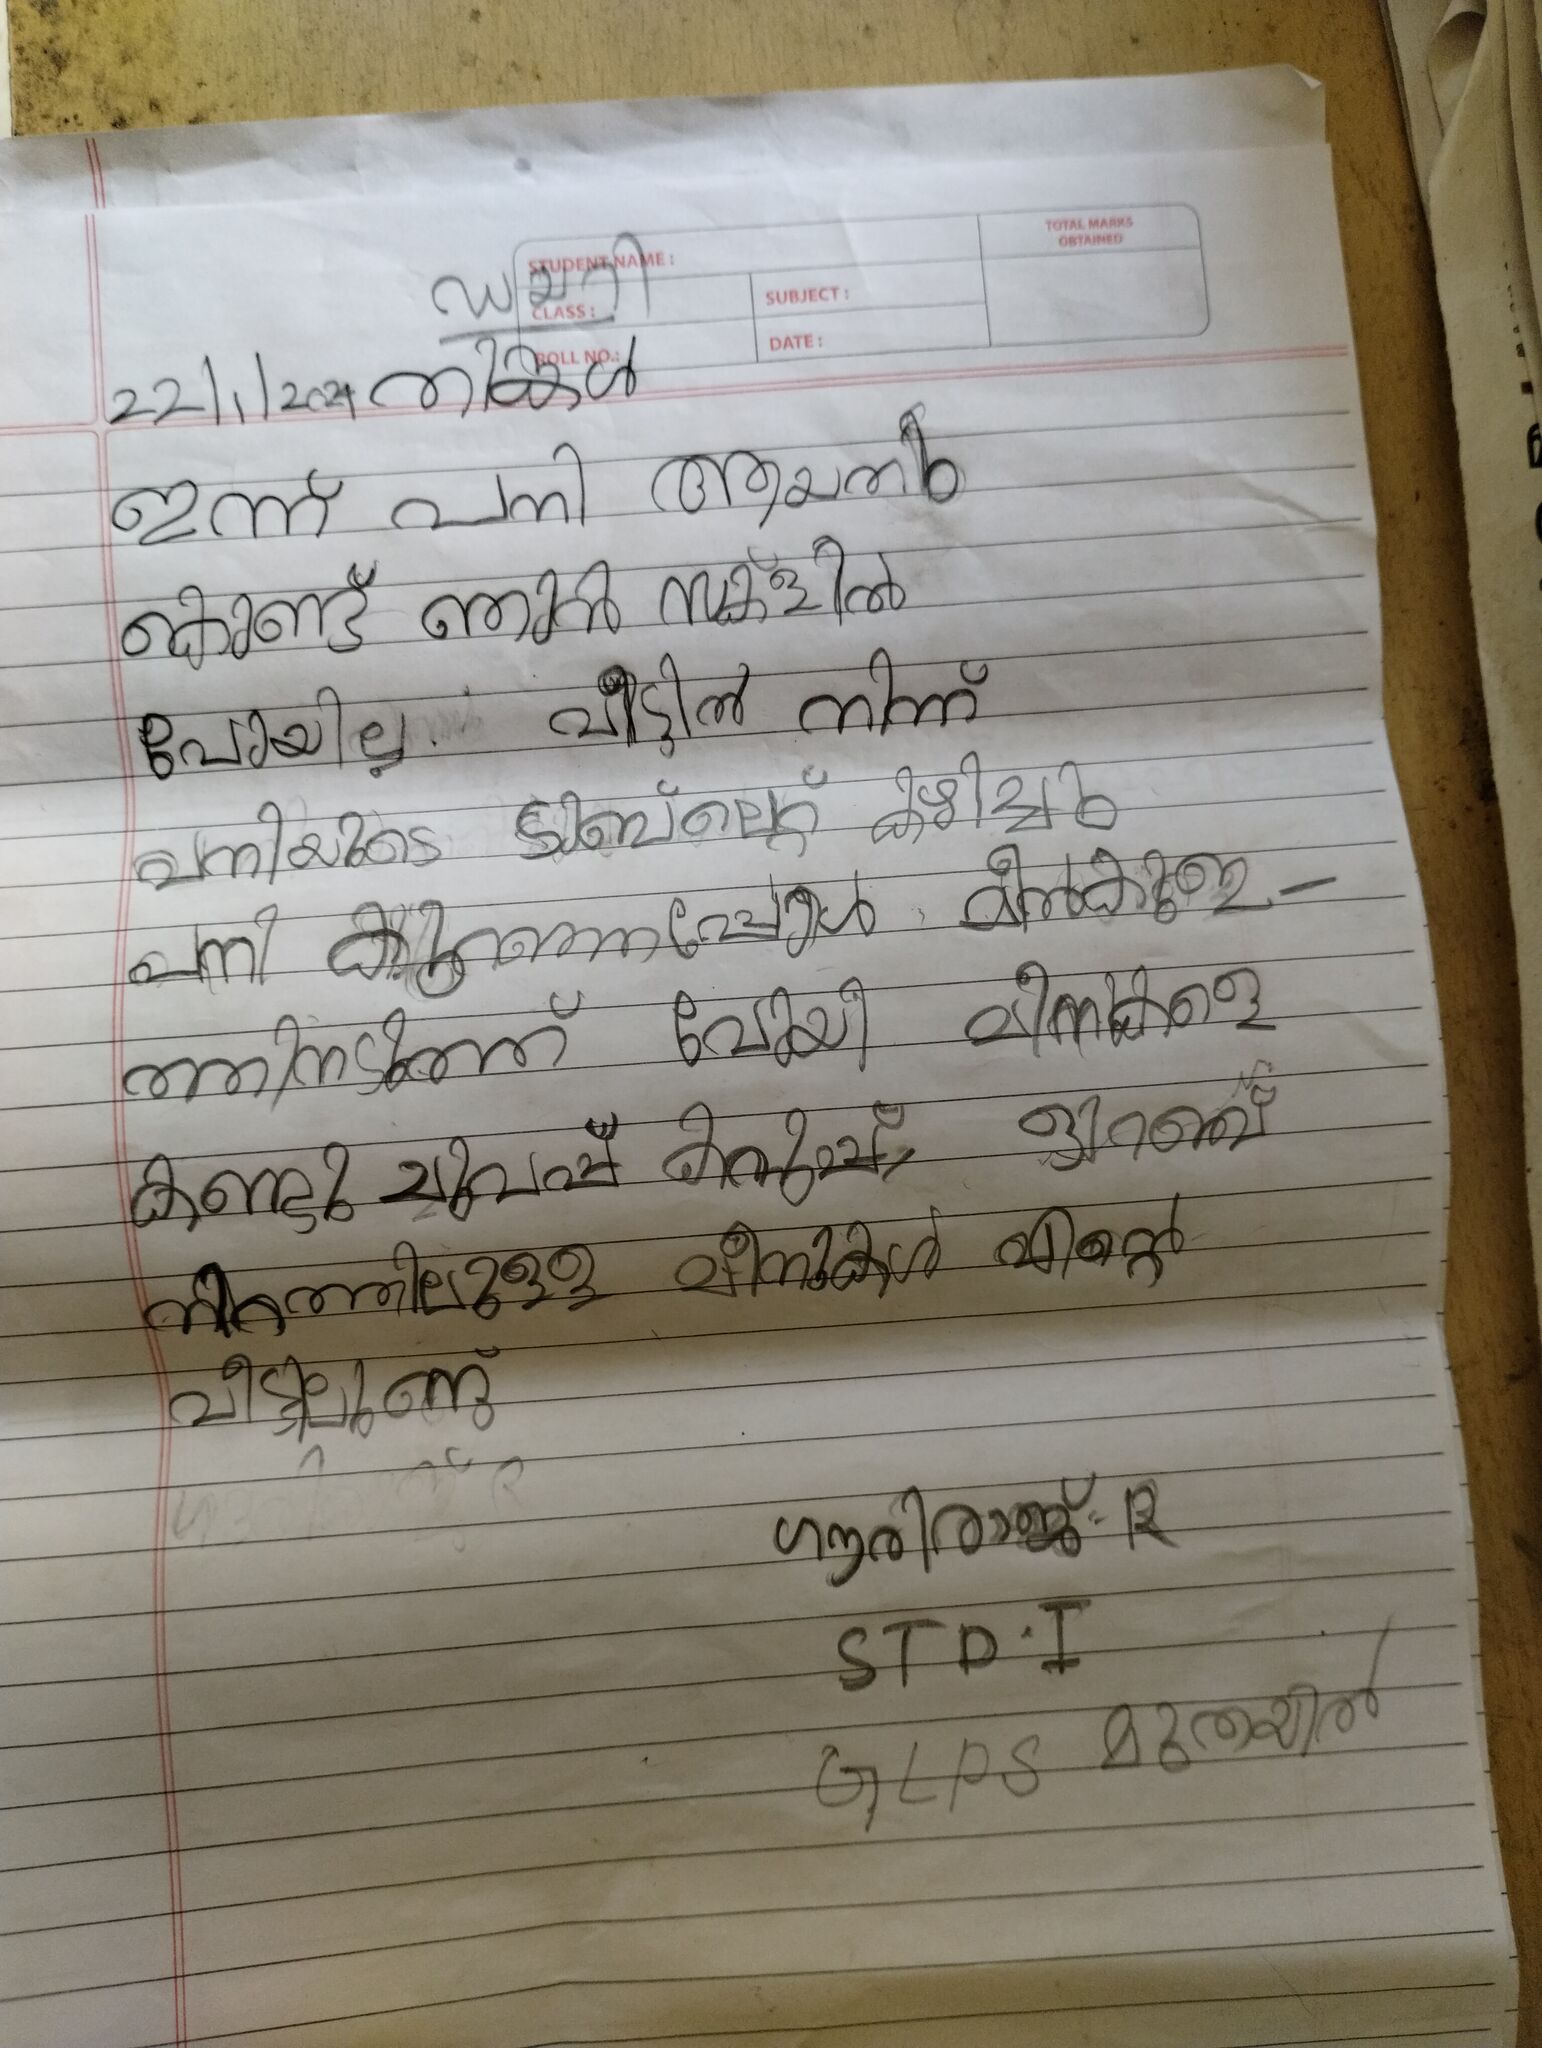 TOTAL MARKS
OBTAINED
STUDENT NAME :
CLASS :
SUBJECT :
ROLL NO.:
DATE :
ഡയറി
22/1/2024 തിങ്കൾ
ഇന്ന് പനി ആയതിൽ
കൊണ്ട് ഞാൻ സ്കൂളിൽ
പോയില്ല. വീട്ടിൽ നിന്ന്
പനിയുടെ ടാബ്ലെറ്റ് കഴിച്ചു
പനി കുറഞ്ഞപ്പോൾ മീൻകുള -
ത്തിനടുത്ത് പോയി മീനുകളെ
കണ്ടു ചുവപ്പ് കറുപ്പ്, ഓറഞ്ച്
നിറത്തിലുള്ള മീനുകൾ എന്റെ
വീട്ടിലുണ്ട്
ഗൗരിരാജ്. R
STD. I
GLPS മുത്തയിൽ